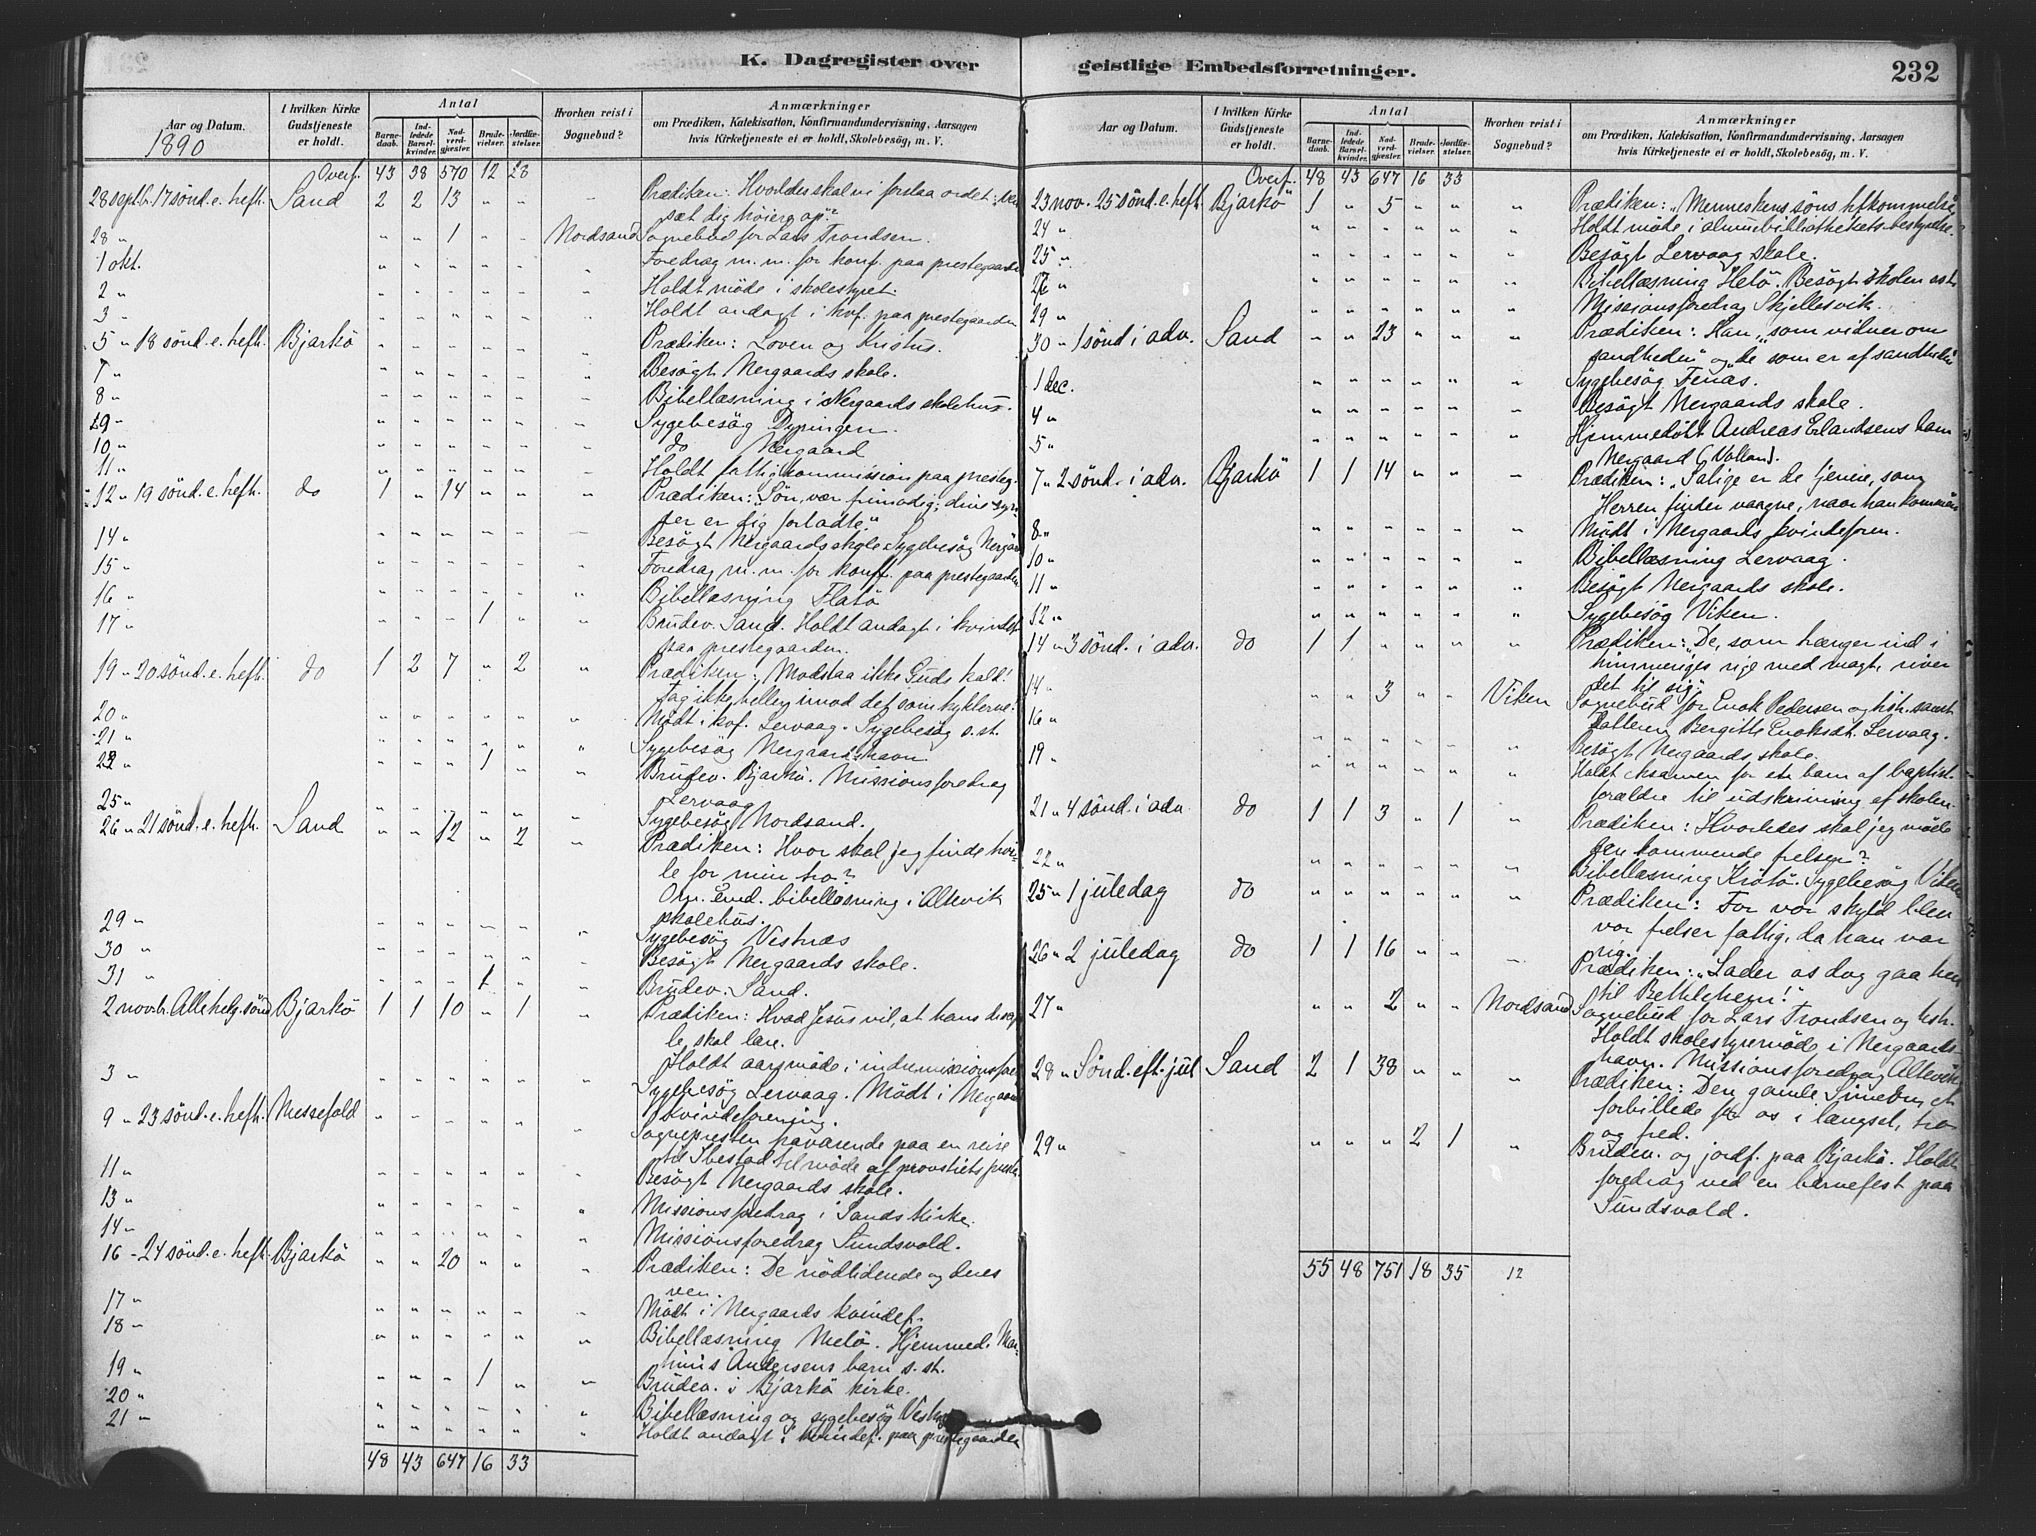 K. Dagregister over
Aar og Datum.
1890
I hvilken Kirke Gudstjeneste er holdt.
Antal
Barnedaab.
Indledede Barselkvinder.
Nadverdgjæster.
Brudevielser.
Jordfæstelser.
Hvorhen reist i Sognebud?
Anmærkninger
om Prædiken, Katekisation, Konfirmandundervisning, Aarsagen
hvis Kirketjeneste ei er holdt, Skolebesøg, m. V.
Overf. 43 38 570 12 28
28 septbr. 17 sönd. e. hefh. Sand 2 2 13 " " " Prædiken: Hvorledes skal vi forstaa ordet: "
sæt dig höiere op"?
28 " " " 1 " " Nordsand Sognebud for Lars Trondsen.
1 okt. " " " " " " Foredrag m. m. for konf. paa prestegaarden
2 " " " " " " " Holdt möde i skolestyret.
3 " " " " " " " Holdt andagt i kvf. paa prestegaarden
5 " 18 sönd. e. hefh. Bjarkö " " " " " " Prædiken: Loven og Kristus.
7 " " " " " " " Besögt Nergaards skole.
8 " " " " " " " Bibellæsning i Nergaards skolehus.
9 " " " " " " " Sygebesög Dypingen.
10 " " " " " " " do Nergaard
11 " " " " " " " Holdt fattigkommission paa presteg.
12 " 19 sönd. e. hefh. do 1 " 14 " " " Prædiken: "Sön, vær frimodig; dine syn-
der er dig forladte."
14 " " " " " " " Besögt Nergaards skole. Sygebesög Nergård
15 " " " " " " " Foredrag m. m. for konf. paa prestegaarden
16 " " " " " " " Bibellæsning Flatö
17 " " " " 1 " " Brudev. Sand. Holdt andagt i kvindef.
paa prestegaarden.
19 " 20 sönd. e. hefh. do 1 2 7 " 2 " Prædiken: Modstaa ikke Guds kald!
Tag ikke heller imod det som hyklerne!
20 " " " " " " " Mödt i kvf. Lervaag. Sygebesög s. st.
21 " " " " " " " Sygebesög Nergaardshavn
22 " " " " 1 " " Brudev. Bjarkö. Missionsforedrag
Lervaag
25 " " " " " " " Sygebesög Nordsand.
26 " 21 sönd. e. hefh. Sand " " 12 " 2 " Prædiken: Hvor skal jeg finde hvi-
le for min tro?
Om Em. bibellæsning i Altevik
skolehus.
29 " " " " " " " Sygebesög Vestnæs
30 " " " " " " " Besögt Nergaards skole.
31 " " " " 1 " " Brudev. Sand.
2 novbr. Allehelg. sönd Bjarkö 1 1 10 " 1 " Prædiken: Hvad Jesus vil, at hans discip-
le skal lære.
Holdt aarsmöde i indremissionsfor.
3 " " " " " " " Sygebesög Lervaag. Mödt i Nergaards
kvindeforening.
9 " 23 sönd. e. hefh. Messefald " " " " " " Sognepresten fraværende paa en reise
til Ibestad til möde af provstiets prester
11 " " " " " " " Besögt Nergaards skole.
13 " " " " " " " Missionsforedrag i Sands kirke.
14 " " " " " " " Missionsforedrag Sundsvold.
16 " 24 sönd. e. hefh. Bjarkö " " 20 " " " Prædiken: De nödlidende og deres
ven.
17 " " " " " " " Mödt i Nergaards kvindef.
18 " " " " " " " Bibellæsning Melö. Hjemmed. Mar-
tinus Andersens barn s. st.
19 " " " " 1 " " Brudev. i Bjarkö kirke.
20 " " " " " " " Bibellæsning og sygebesög
21 " " " " " " " Holdt andagt i kvindef. paa prestegaarden
48 43 647 16 33
geistlige Embedsforretninger.
232
Aar og Datum.
I hvilken Kirke Gudstjeneste er holdt.
Antal
Barnedaab.
Indledede Barselkvinder.
Nadverdgjæster.
Brudevielser.
Jordfæstelser.
Hvorhen reist i Sognebud?
Anmærkninger
om Prædiken, Katekisation, Konfirmandundervisning, Aarsagen
hvis Kirketjeneste ei er holdt, Skolebesøg, m. V.
Overf. 48 43 647 16 33
23 nov. 25 sönd. e. hefh. Bjarkö 1 " 5 " " " Prædiken: "Menneskens söns
24 " " " " " " " Holdt möde i almuebibliothekets bestyrelse.
25 " " " " " " " Besögt Lervaag skole.
26 " " " " " " " Bibellæsning Helö. Besögt skolen s. st.
29 " " " " " " " Missionsforedrag Skjellesvik.
30 " 1 sönd i adv. Sand " " 23 " " " Prædiken: Han, "som vidner om
sandheden" og de som er af sandheden
1 dec. " " " " " " Sygebesög Fenäs.
4 " " " " " " " Besögt Nergaards skole.
5 " " " " " " " Hjemmedöbt Andreas Erlandsens barn
Nergaard (Volland).
7 " 2 sönd. i adv. Bjarkö 1 1 14 " " " Prædiken: "Salige er de tjenere, som
Herren finder vaagne, naar han kommer
8 " " " " " " " Mödt i Nergaards kvindeforen.
10 " " " " " " " Bibellæsning Lervaag.
11 " " " " " " " Besögt Nergaards skole.
12 " " " " " " " Sygebesög Viken.
14 " 3 sönd. i adv. do 1 1 " " " " Prædiken: "De, som trænger ind i
himmeriges rige med magt, river
det til sig"
14 " " " 3 " " Viken Sognebud for Enok Pedersen og hstr. samt
datteren Bergitte Enoksdt. Lervaag.
16 " " " " " " " Besögt Nergaards skole.
19 " " " " " " " Holdt eksamen for et barn af baptist-
forældre til udskrivning af skolen
21 " 4 sönd. i adv do 1 1 3 " 1 " Prædiken: Hvorledes skal jeg möde
den kommende frelser?
22 " " " " " " " Bibellæsning Krötö. Sygebesög Viken
25 " 1 juledag do " " " " " " Prædiken: For vor skyld blev
vor frelser fattig, da han var
rig.
26 " 2 juledag do 1 1 16 " " " Prædiken: "Lader os dog gaa hen
til Bethlehem!"
27 " " " 2 " " Nordsand Sognebud for Lars Trondsen og hstr.
Holdt skolestyremöde i Nergaards-
havn. Missionsforedrag Altevik
28 " Sönd. eft. jul Sand 2 1 38 " " " Prædiken: Den gamle Simeon, et
forbillede for os i længsel, tro
og fred.
29 " " " " 2 1 " Brudev. og jordf. paa Bjarkö. Holdt
foredrag ved en barnefest paa
Sundsvold.
55 48 751 18 35 12